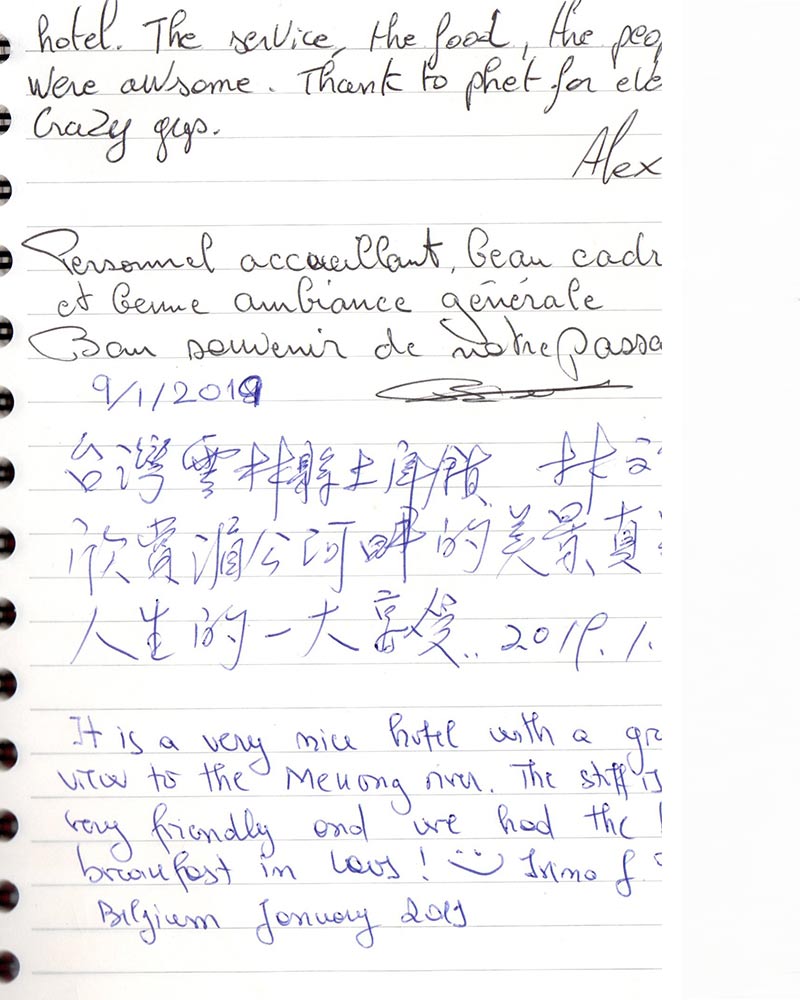 hotel. The service, the food, the peo
were awsome. Thank to phet for eve
Crazy guys.
Alex
Personnel accueillant, beau cadr
et bonne ambiance générale
Bon souvenir de notre passa
9/1/2019
台灣雲林縣土庫鎮 林
欣賞湄公河畔的美景真
人生的一大享受.. 2019.1.
It is a very nice hotel with a gr
view to the Mekong river. The staff is
very friendly and we had the
breakfast in Laos!
Belgium January 2019